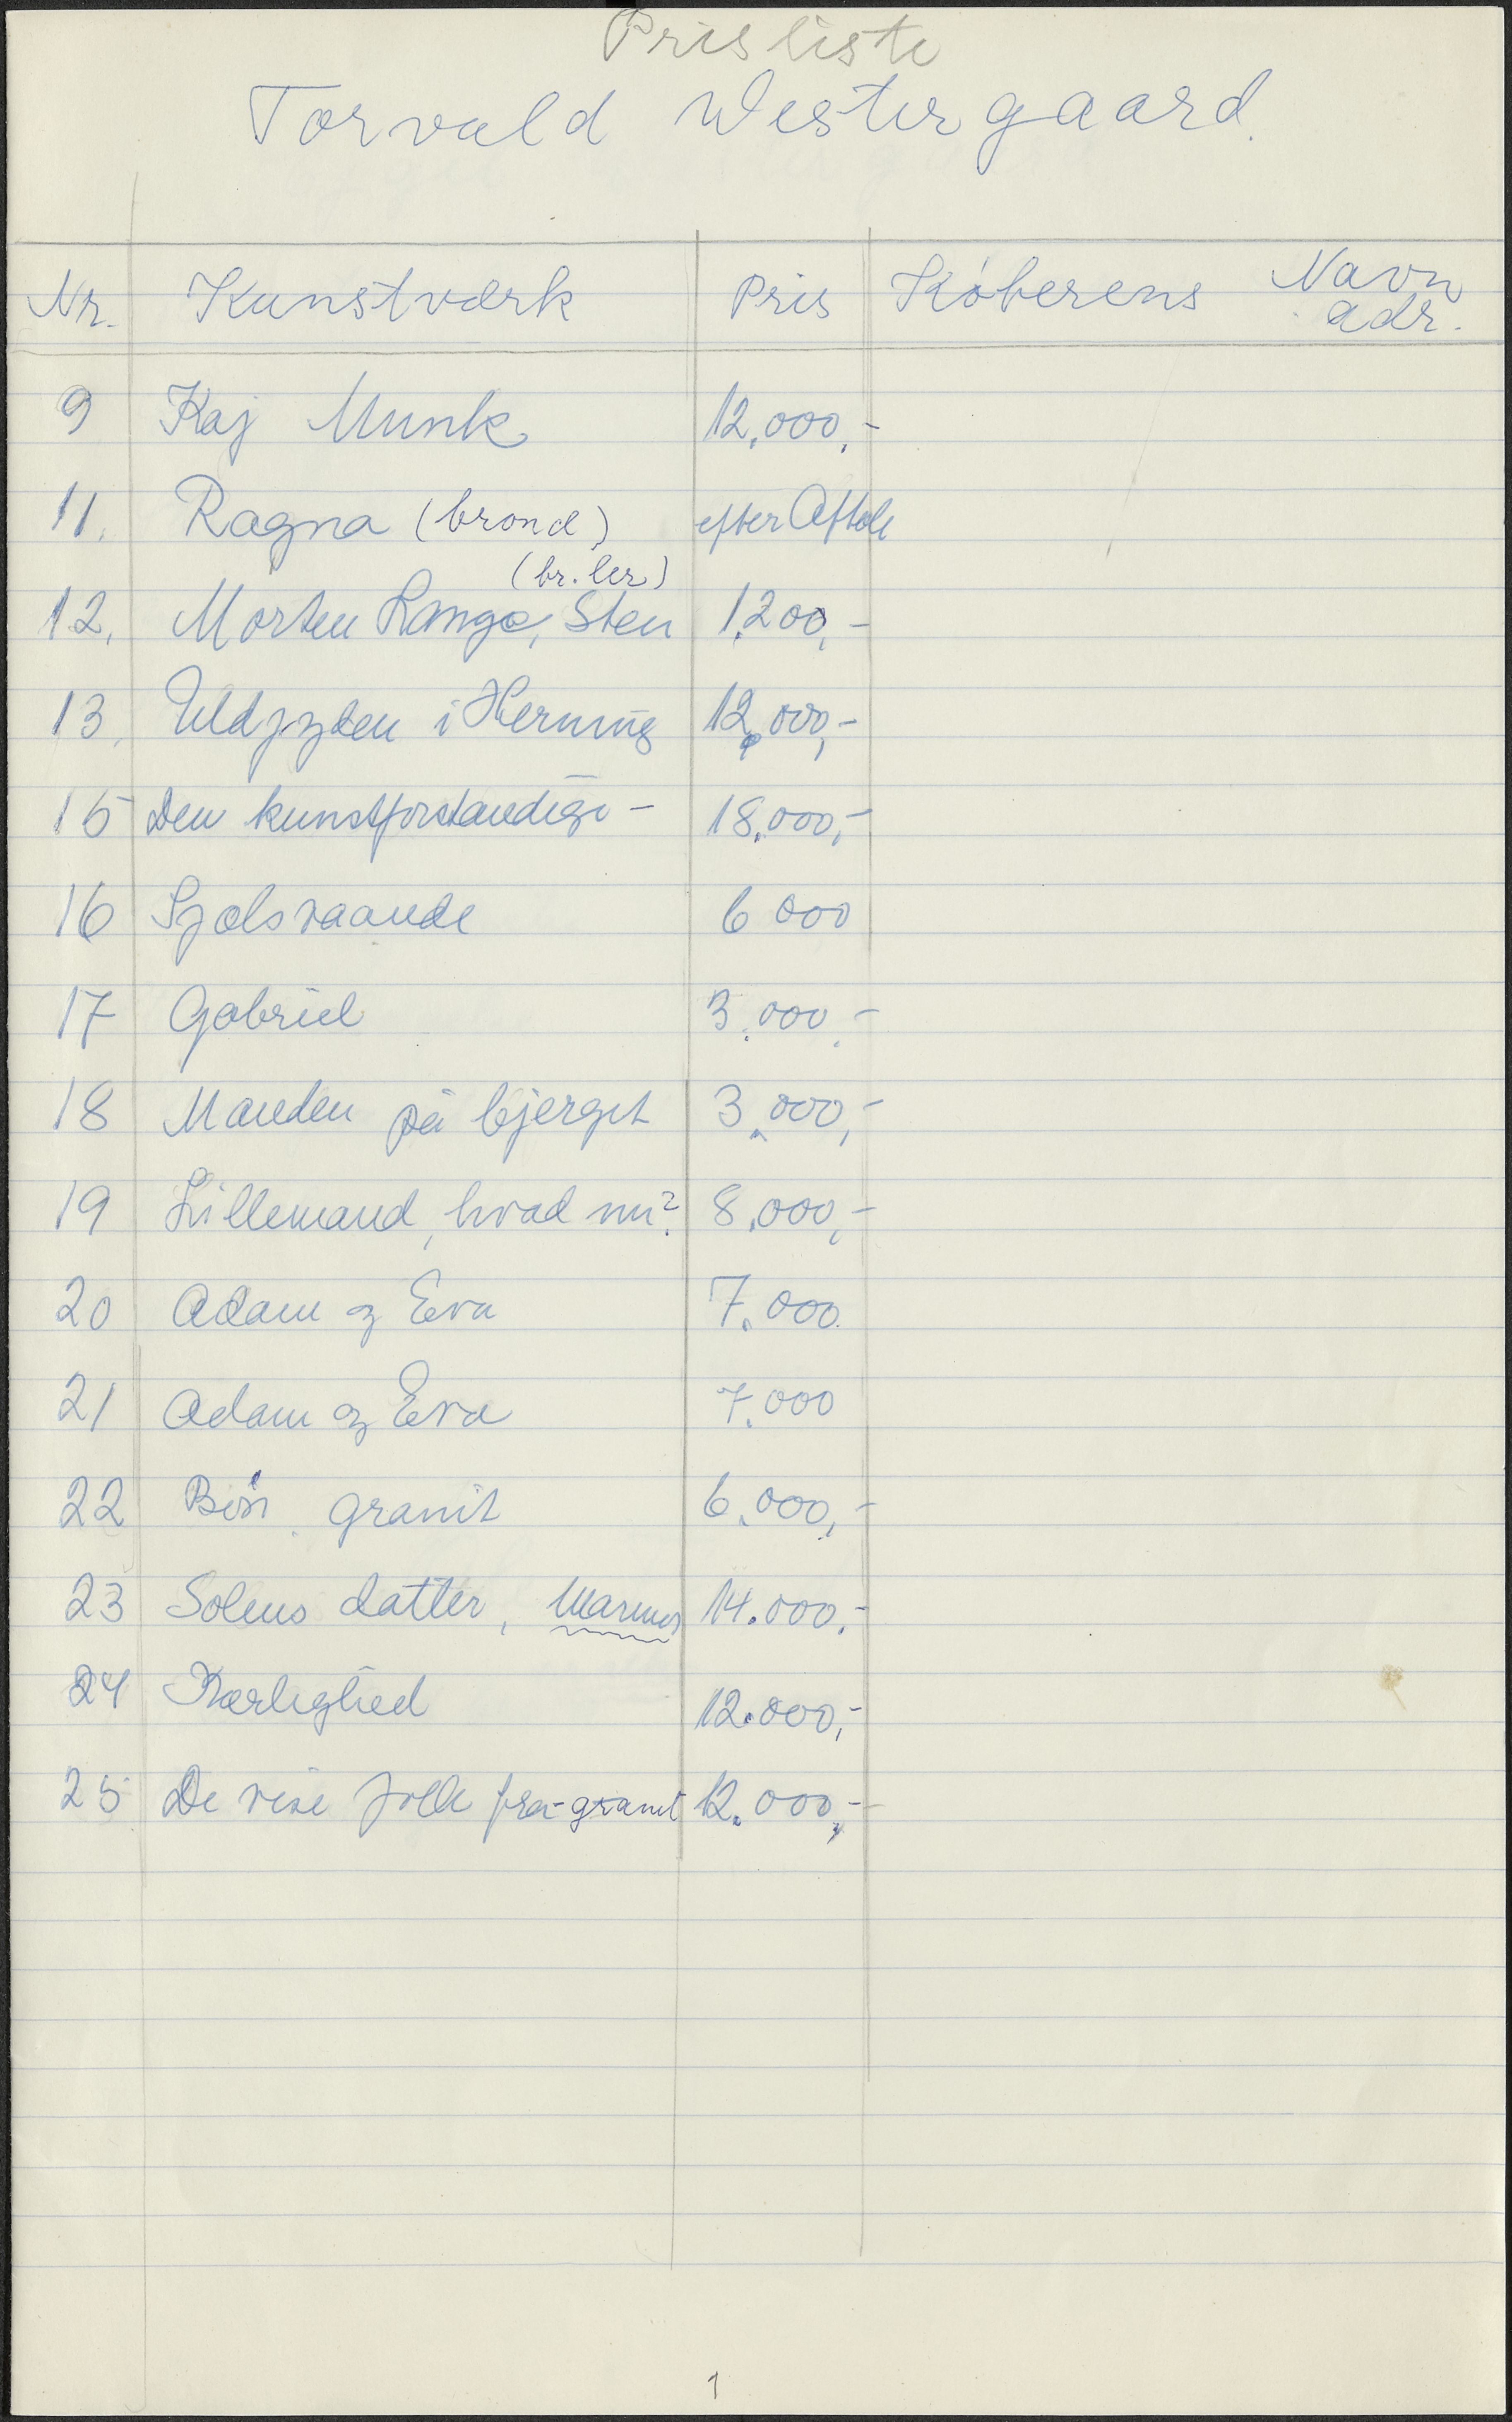 Prisliste
Torvald Westergaard.
Nr. Kunstværk Pris Køberens Navn
adr.
9 Kaj Munk 12.000,-
11. Ragna (brond) efter Aftale
(br. ler)
12. Morten Lange, Sten 1.200,-
13. Uldjyden i Herning 12.000,-
15 Den kunstforstandige - 18.000,-
16 Sjælsvaande 6 000
17 Gabriel 3.000,-
18 Manden på bjerget 3.000,-
19 Lillemand, hvad nu? 8.000,-
20 Adam og Eva 7.000
21 Adam og Eva 7.000
22 Bøn. granit 6.000,-
23 Solens datter, Marmor 14.000.-
24 Kærlighed 12.000,-
25 De vise fra-granit 12.000,-
1